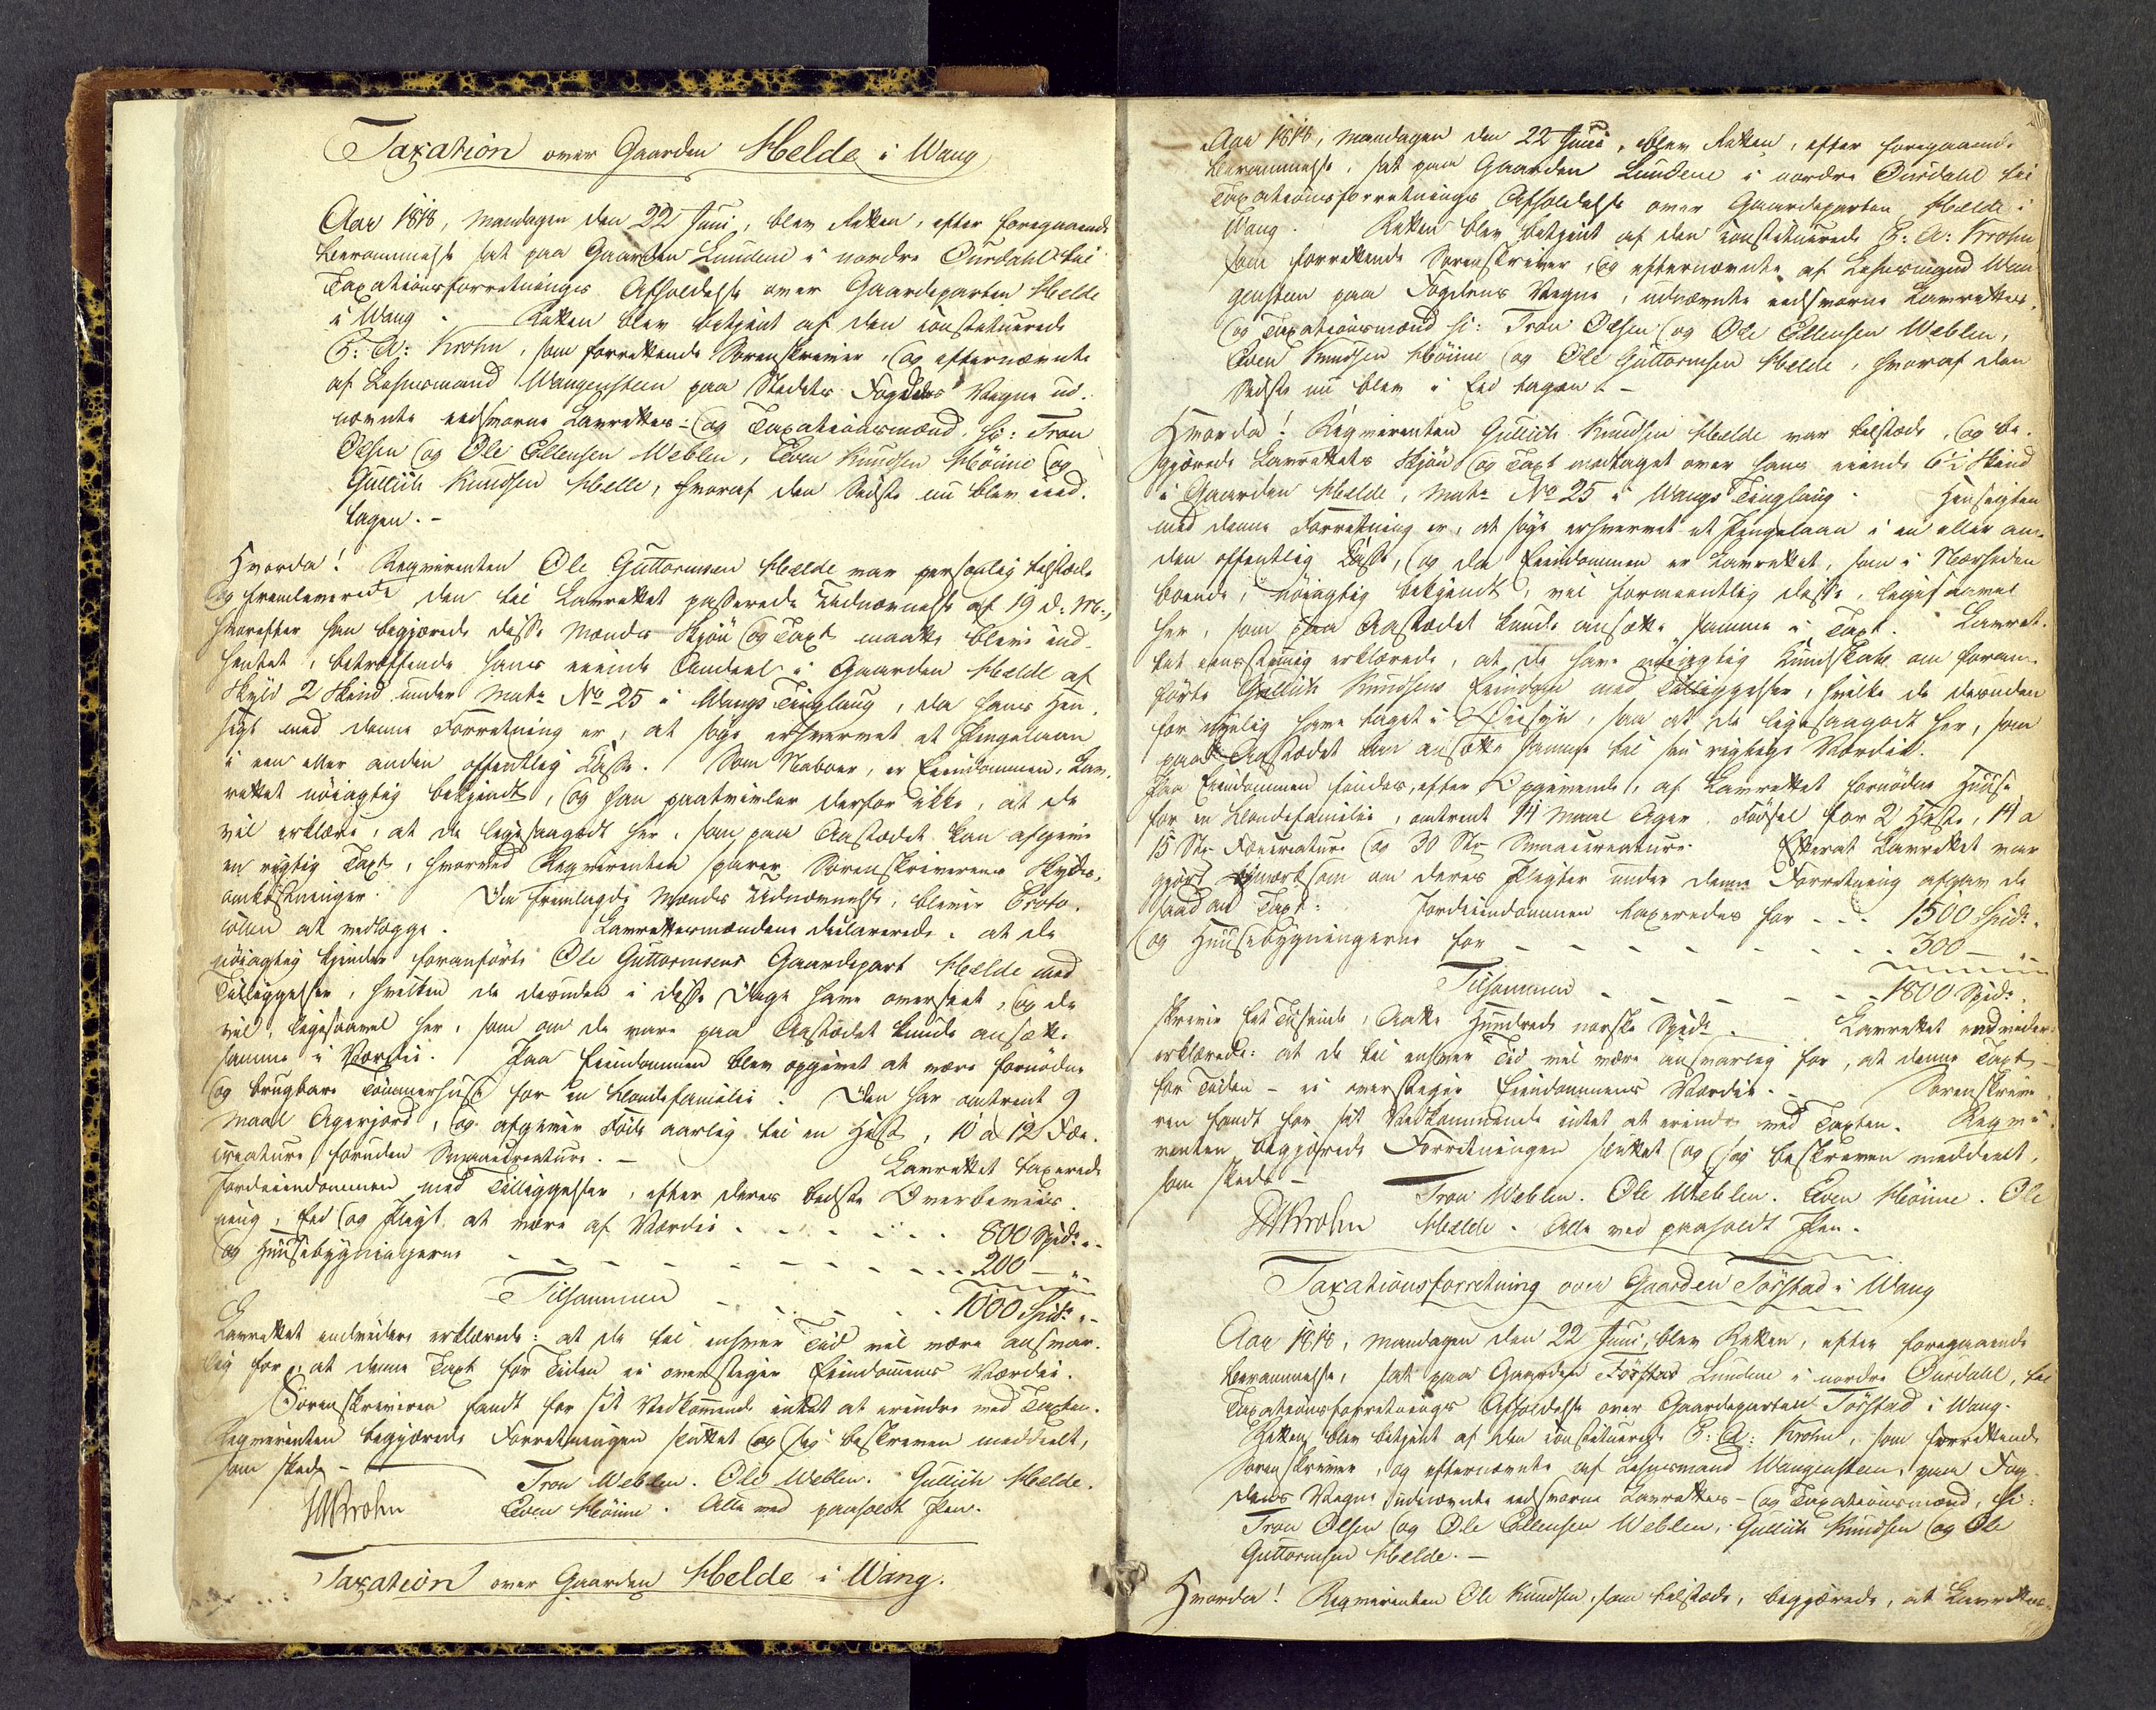 Taxation over Gaarden Helde i Wang
Aar 1818, Mandagen den 22 Juni, blev Retten, efter foregaaende
Berammelse sat paa Gaarden Lundene i nordre Ourdahl til
Taxationsforretnings Afholdelse over Gaardeparten Helde
i Wang. Retten blev betjent af den constituerede
H: A: Krohn, som forrettende Sorenskriver, og efternævnte
af Lehnsmand Wangensteen paa Stedets Fogdens Vegne ud-
nævnte eedsvorne Laurettes- og Taxationsmænd, sc: Tron
Olsen og Ole Ellensen Weblen, Even Knudsen Höine og
Gullick Knudsen Helle, hvoraf den Sidste nu blev eed-
tagen.-
Hvorda! Reqvirenten Ole Guttormsen Helde var personlig tilstæde
og fremleverede den til Laurettet passerede Udnævnelse af 19 d: M:,
hvorefter han begjærede disse Mænds Skjøn og Taxt maatte blive ind-
hentet, betræffende hans eiende Andeel i Gaarden Helde af
Skyld 2 Skind under Matr No 25 i Wangs Tinglaug, da hans Hen-
sigt med denne Forretning er, at søge erhvervet et Pengelaan
i een eller anden offentlig Casse. Som Naboer, er Eiendommen, Lau-
rettet nöiagtig bekjendt, og han paatvivler derfor ikke, at de
vil erklære, at de ligesaagodt her, som paa Aastædet kan afgive
en rigtig Taxt, hvorved Reqvirenten sparer Sorenskriverens Skyds-
omkostninger. Den fremlagde Mænds Udnævnelse, bliver Proto-
collen at vedlægge. Laurettesmændene declarerede: at de
nöiagtig kjender foranførte Ole Guttormsens Gaardepart Helde med
Tilliggelser, hvilken de desuden i disse Dage have overseet, og de
vil, ligesaavel her, som om de vare paa Aastædet kunde ansætte
samme i Værdie. Paa Eiendommen blev opgivet at være fornødne
og brugbare Tømmerhuse for en Bondefamilie. Den har omtrent 9
Maal Agerjord, og afgiver Föde aarlig til en Hest, 10 a 12 Fæe-
creature, foruden Smaacreature.- Laurettet taxerede
Jordeiendommen med Tilliggelser, efter deres bedste Overbeviis-
ning, Eed og Pligt at være af Værdie - - - - 800 Spdr.-
og Huusebygningerne - - - - - - - - 200 - "
Tilsammen - - - - - 1000 Spdr.-
Laurettet endvidere erklærede: at de til enhver Tid vil være ansvar-
lig for, at denne Taxt for Tiden ei overstiger Eiendommens Værdie.
Sorenskriveren fandt for sit Vedkommende intet at erindre ved Taxten.
Reqvirenten begjærede Forretningen sluttet og sig beskreven meddeelt,
som skede.- Tron Weblen. Ole Weblen. Gullick Helde.
HAKrohn Even Höine. Alle med paaholdt Pen.
Taxation over Gaarden Helde i Wang.
Aar 1818, Mandagen den 22 Juni, blev Retten, efter foregaaende
Berammelse, sat paa Gaarden Lundene i nordre Ourdahl til
Taxationsforretnings Afholdelse over Gaardeparten Helde i
Wang. Retten blev betjent af den constituerede H: A: Krohn
som forrettende Sorenskriver, og efternævnte af Lehnsmand Wan-
gensteen paa Fogdens Vegne, udnævnte eedsvorne Laurettes-
og Taxationsmænd sc: Tron Olsen og Ole Ellensen Weblen,
Even Knudsen Höine og Ole Guttormsen Helde, hvoraf den
Sidste nu blev i Eed tagen.-
Hvorda! Reqvirenten Gullick Knudsen Helde var tilstæde, og be-
gjærede Laurettets Skjøn og Taxt modtaget over hans eiende 6½ Skind
i Gaarden Helde, Matr No 25 i Wangs Tinglaug. Hensigten
med denne Forretning er, at søge erhvervet et Pengelaan i en eller an-
den offentlig Casse, og da Eiendommen er Laurettet, som i Nærheden
boende, nöiagtig bekjendt, vil formeentlig disse, ligesaavel
her, som paa Aastædet kunde ansætte samme i Taxt. Lauret-
tet eensstemmig erklærede, at de have nöiagtig Kundskab om foran-
førte Gullick Knudsens Eiendom med Tilliggelser, hvilke de desuden
for nylig have taget i Øiesyn, saa at de ligesaagodt her, som
paa Aastædet kan ansætte samme til sin rigtige Værdie.
Paa Eiendommen findes, efter Opgivende, af Laurettet fornødne Huuse
for en Bondefamilie, omtrent 14 Maal Ager. Födsel for 2 Heste, 14 a
15 Str Fæecreature og 30 Str Smaacreature. Efterat Laurettet var
gjort opmærksom om deres Pligter under denne Forretning afgav de
saadan Taxt: Jordeiendommen taxeredes for - - - 1500 Spdr.
og Huusebygningerne for - - - - - - - - 300 - "
Tilsammen - - - - - - 1800 Spdr.
skriver Eet Tusinde, Aatte Hundrede norske Spdr. Laurettet endvidere
erklærede: at de til enhver Tid vil være ansvarlig for, at denne Taxt -
for Tiden - ei overstiger Eiendommens Værdie.- Sorenskrive-
ren fandt for sit Vedkommende intet at erindre ved Taxten. Reqvi-
renten begjærede Forretningen sluttet og sig beskreven meddeelt,
som skede.- Tron Weblen. Ole Weblen. Even Höine. Ole
HAKrohn Helde. Alle med paaholdt Pen.
Taxationsforretning over Gaarden Törstad i Wang
Aar 1818, Mandagen den 22 Juni, blev Retten, efter foregaaende
Berammelse, sat paa Gaarden Törstad Lundene i nordre Ourdahl, til
Taxationsforretnings Afholdelse over Gaardeparten Törstad i Wang.
Retten blev betjent af den constituerede H: A: Krohn, som forrettende
Sorenskriver, og efternævnte af Lehnsmand Wangensteen, paa Fog-
dens Vegne udnævnte eedsvorne Laurettes- og Taxationsmænd, sc:
Tron Olsen og Ole Ellensen Weblen, Gullick Knudsen og Ole
Guttormsen Helde.-
Hvorda! Reqvirenten Ole Knudsen, som tilstæde, begjærede, at Laurettes-